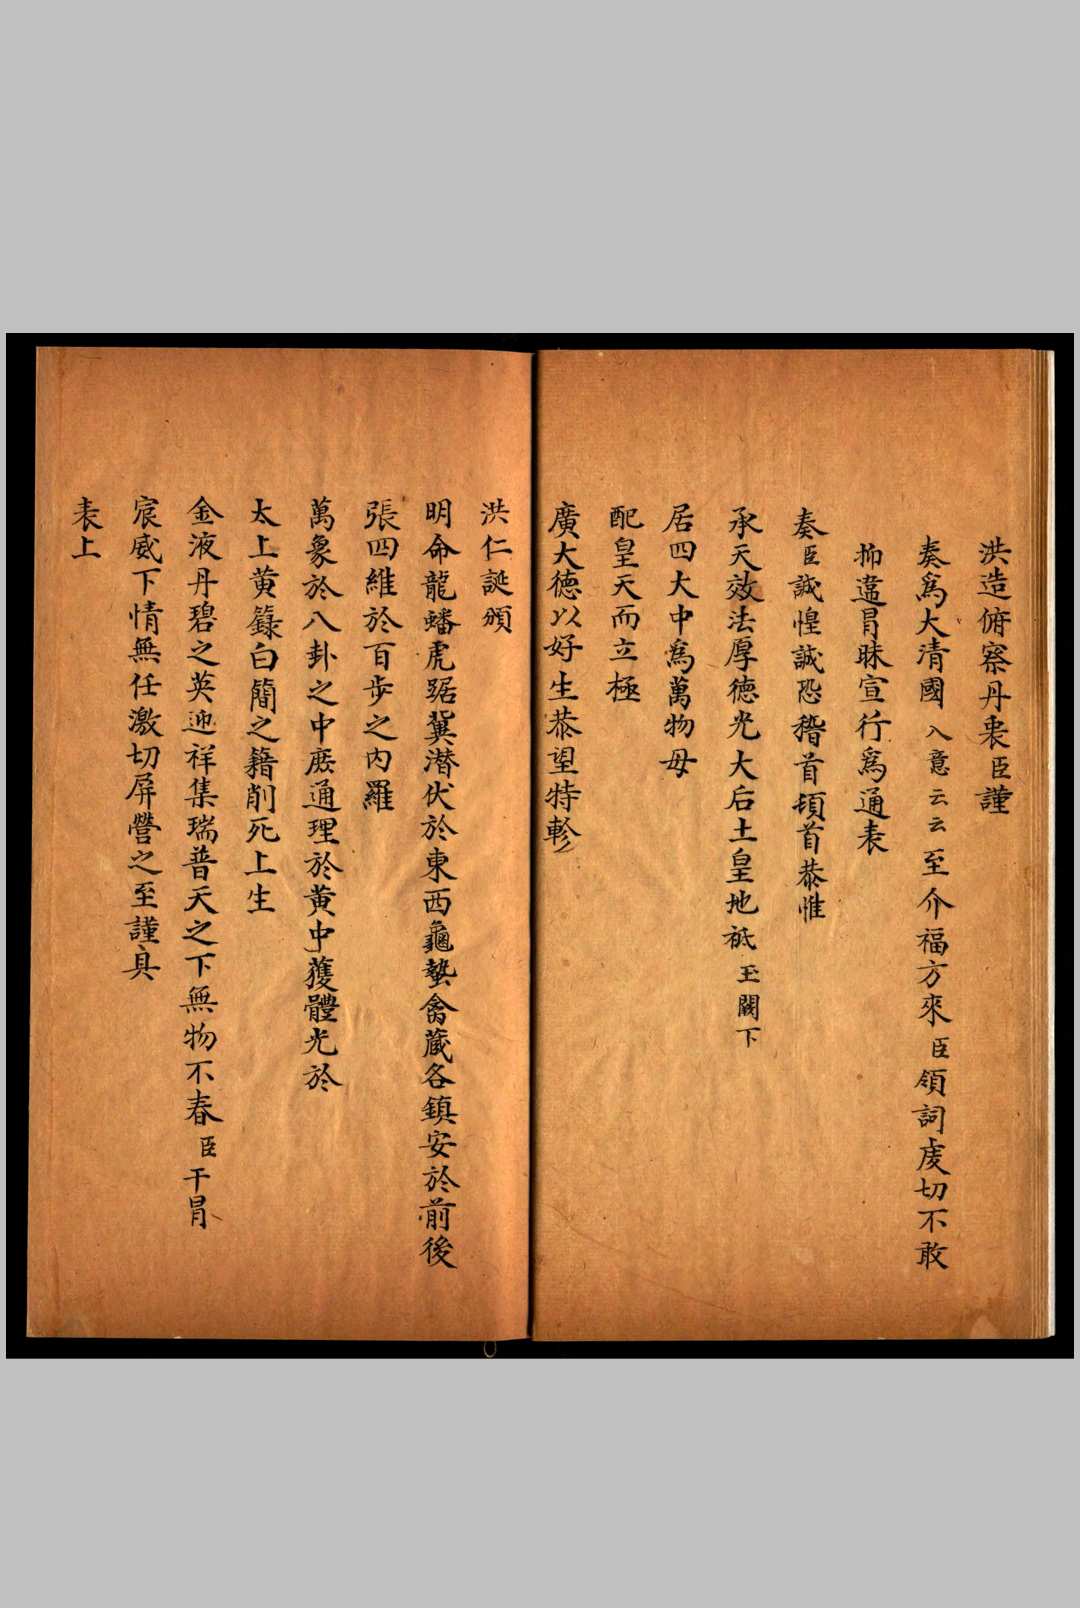 洪造俯察丹衷臣謹
奏爲大清國入意云云至介福方來臣領詞虔切不敢
抑違冐昧宣行爲通表
奏臣誠惶誠恐稽首頓首恭惟
承天效法厚德光大后土皇地祇玉闕下
居四大中爲萬物母
配皇天而立極
廣大德以好生恭望特軫
洪仁誕頒
明命龍蟠虎踞冀潜伏於東西龜蟄禽藏各鎮安於前後
張四維於百步之内羅
萬象於八卦之中庶通理於黄中獲體光於
太上黄籙白簡之籍削死上生
金液丹碧之英迎祥集瑞普天之下無物不春臣干冐
宸威下情無任激切屏營之至謹具
表上